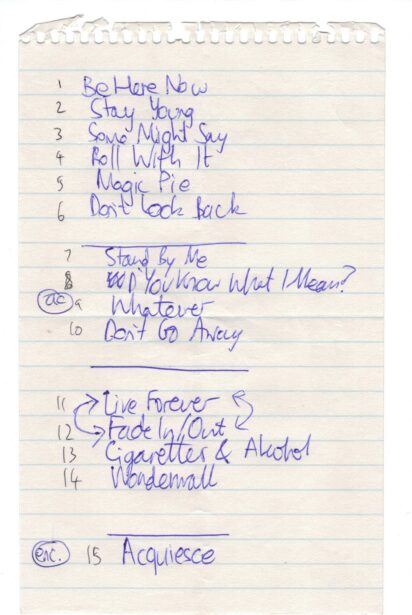 1 Be Here Now
2 Stay Young
3 Some Might Say
4 Roll With It
5 Magic Pie
6 Don't Look Back
7 Stand By Me
8 D'You Know What I Mean?
ac 9 Whatever
10 Don't Go Away
11 Live Forever
12 Fade In/Out
13 Cigarettes & Alcohol
14 Wonderwall
enc. 15 Acquiesce